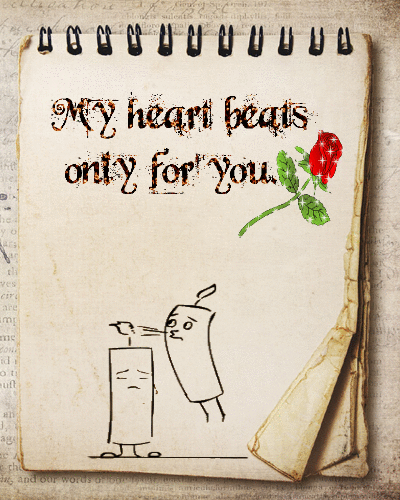 My heart beats
only for you.